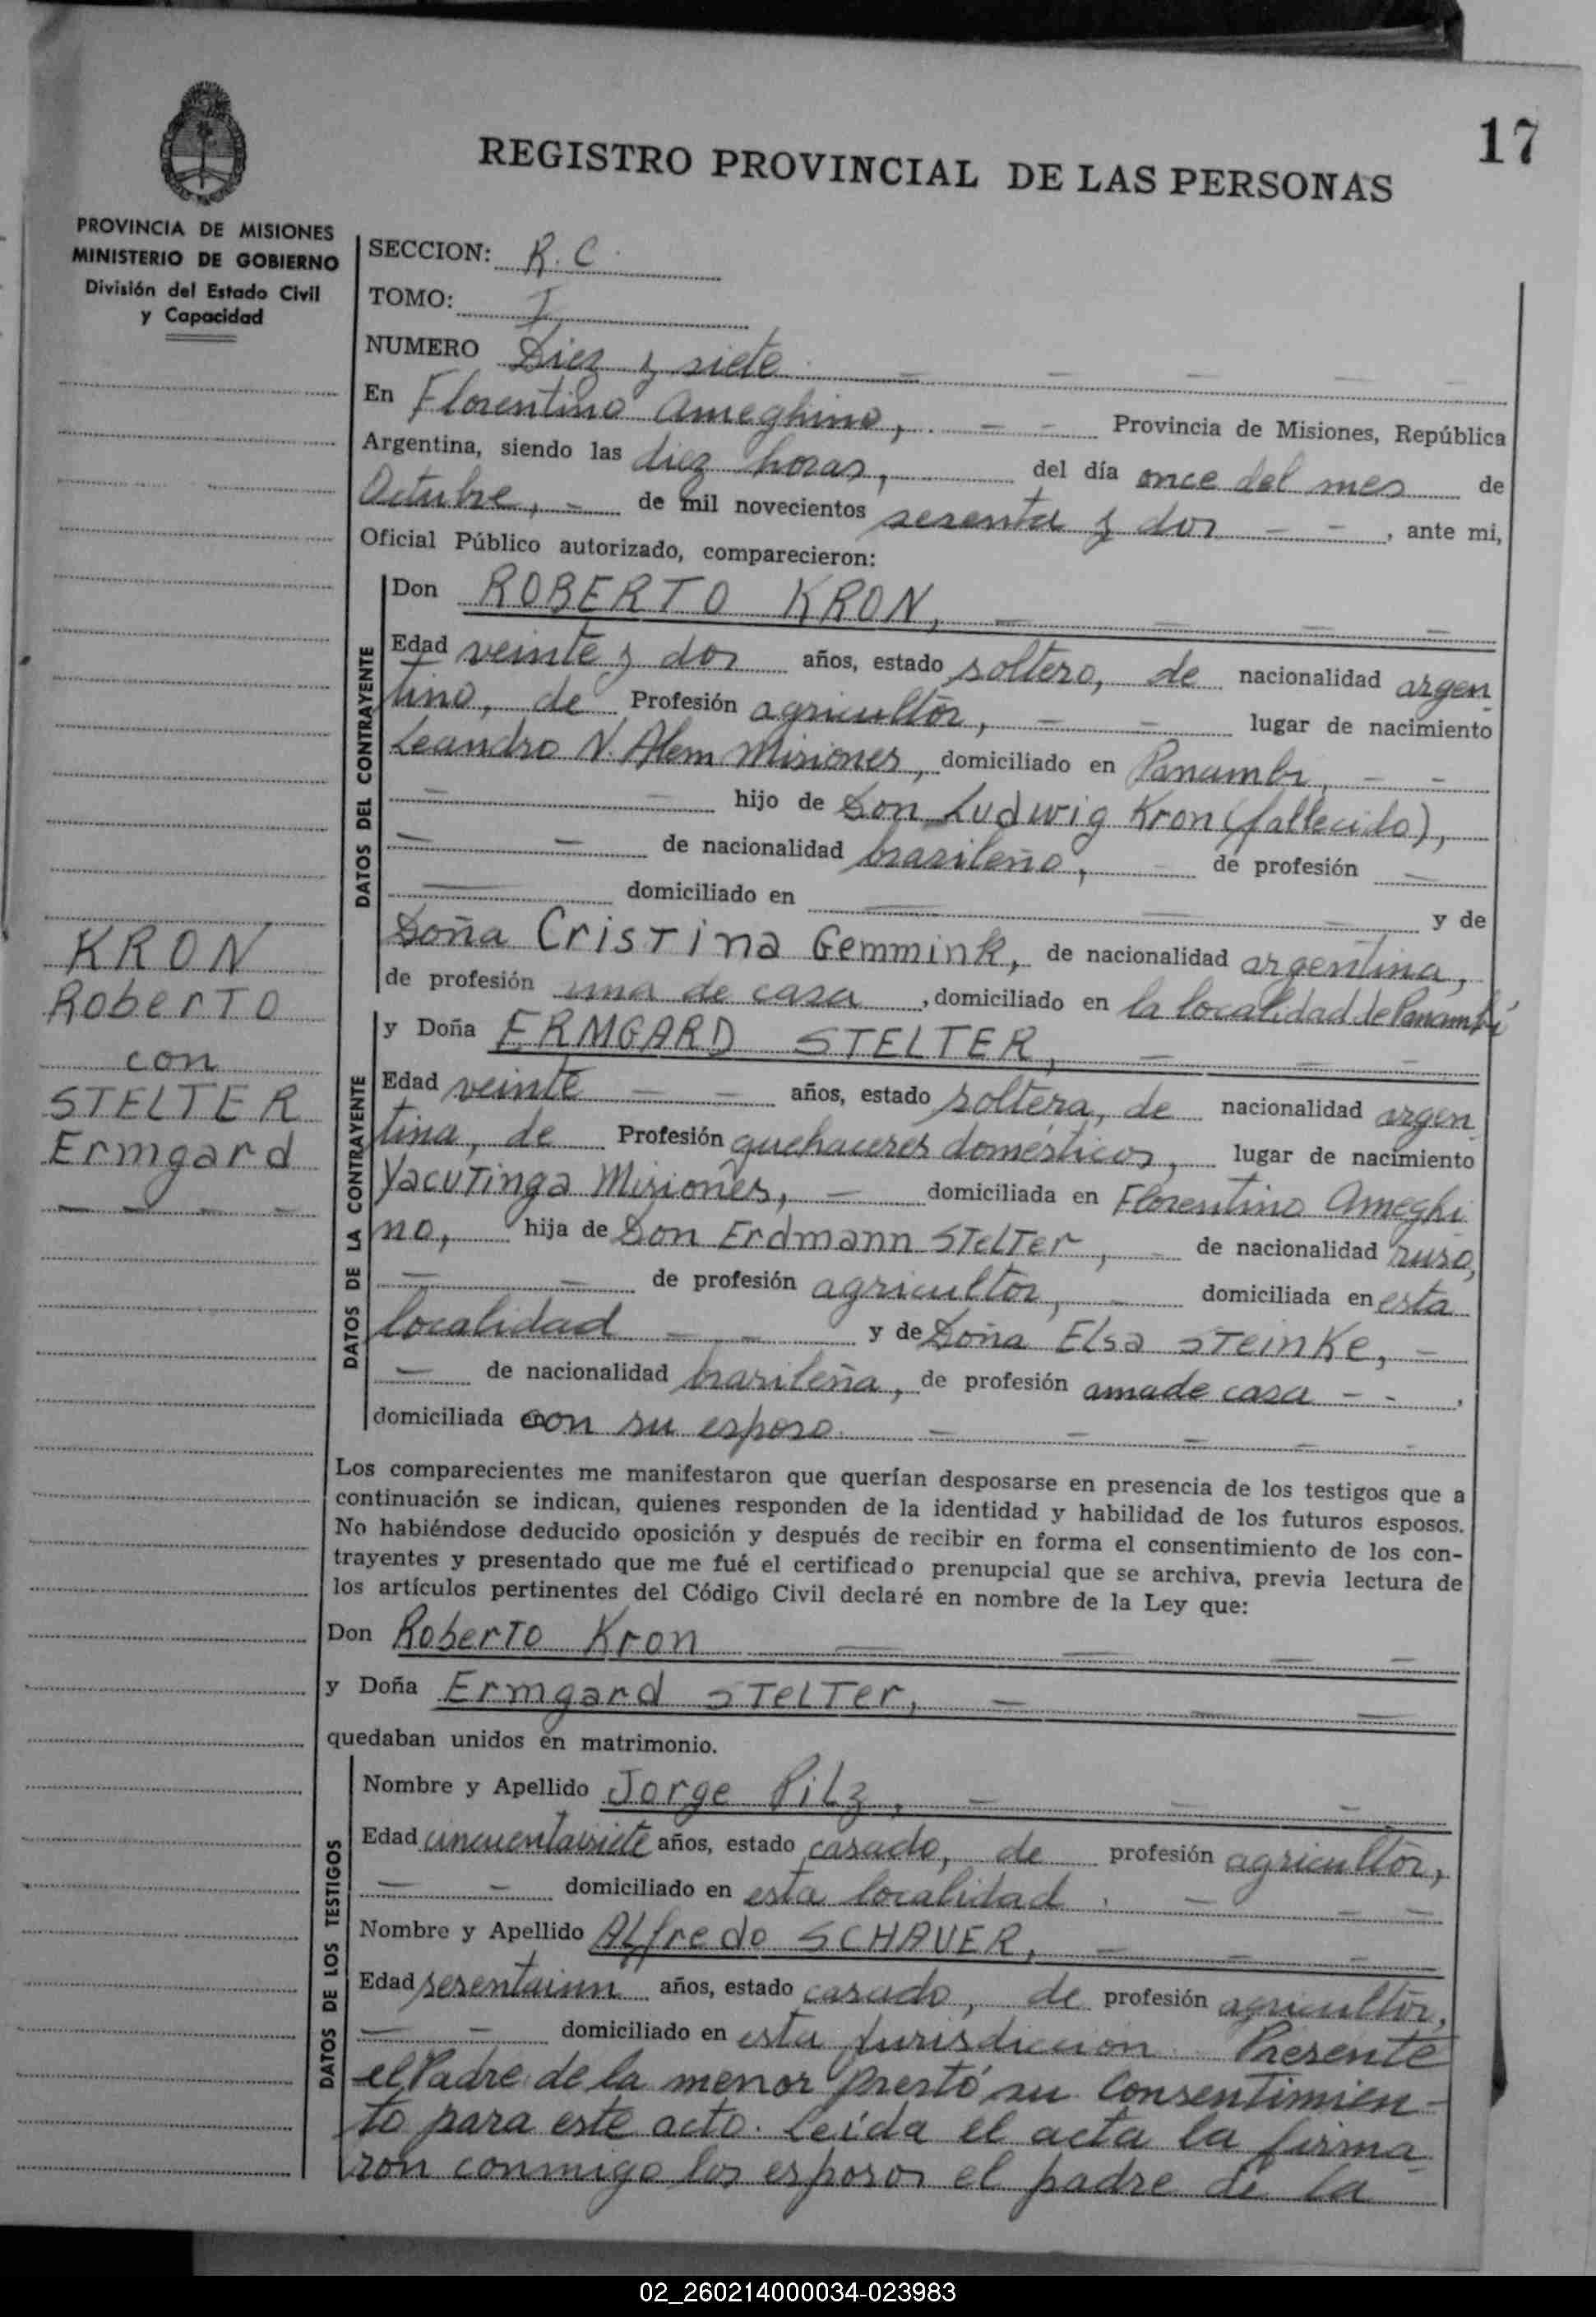 17
REGISTRO PROVINCIAL DE LAS PERSONAS
PROVINCIA DE MISIONES
MINISTERIO DE GOBIERNO
División del Estado Civil
y Capacidad
SECCION: R. C.
TOMO: I
NUMERO Diez y siete
En Florentino Ameghino, Provincia de Misiones, República
Argentina, siendo las diez horas, del día once del mes de
Octubre, de mil novecientos sesenta y dos, ante mi,
Oficial Público autorizado, comparecieron:
DATOS DEL CONTRAYENTE
Don ROBERTO KRON,
Edad veinte y dos años, estado soltero, de nacionalidad argen
tino, de Profesión agricultor, lugar de nacimiento
Leandro N. Alem Misiones, domiciliado en Panambi,
hijo de Don Ludwig Kron (fallecido),
de nacionalidad brasileño, de profesión
domiciliado en y de
Doña Cristina Gemmink, de nacionalidad argentina,
de profesión ama de casa, domiciliado en la localidad de Panambí
KRON
Roberto
con
STELTER
Ermgard
DATOS DE LA CONTRAYENTE
y Doña ERMGARD STELTER,
Edad veinte años, estado soltera, de nacionalidad argen
tina, de Profesión quehaceres domésticos, lugar de nacimiento
Yacutinga Misiones, domiciliada en Florentino Ameghi
no, hija de Don Erdmann Stelter, de nacionalidad ruso,
de profesión agricultor, domiciliada en esta
localidad y de Doña Elsa Steinke,
de nacionalidad brasileña, de profesión ama de casa
domiciliada con su esposo.
Los comparecientes me manifestaron que querían desposarse en presencia de los testigos que a
continuación se indican, quienes responden de la identidad y habilidad de los futuros esposos.
No habiéndose deducido oposición y después de recibir en forma el consentimiento de los con-
trayentes y presentado que me fué el certificado prenupcial que se archiva, previa lectura de
los artículos pertinentes del Código Civil declaré en nombre de la Ley que:
Don Roberto Kron
y Doña Ermgard Stelter,
quedaban unidos en matrimonio.
DATOS DE LOS TESTIGOS
Nombre y Apellido Jorge Pilz,
Edad cincuentaisiete años, estado casado, de profesión agricultor,
domiciliado en esta localidad.
Nombre y Apellido Alfredo SCHAUER,
Edad sesentaiun años, estado casado, de profesión agricultor,
domiciliado en esta jurisdicción Presente
el Padre de la menor prestó su consentimien-
to para este acto. Leída el acta la firma
ron conmigo los esposos el padre de la
02_260214000034-023983